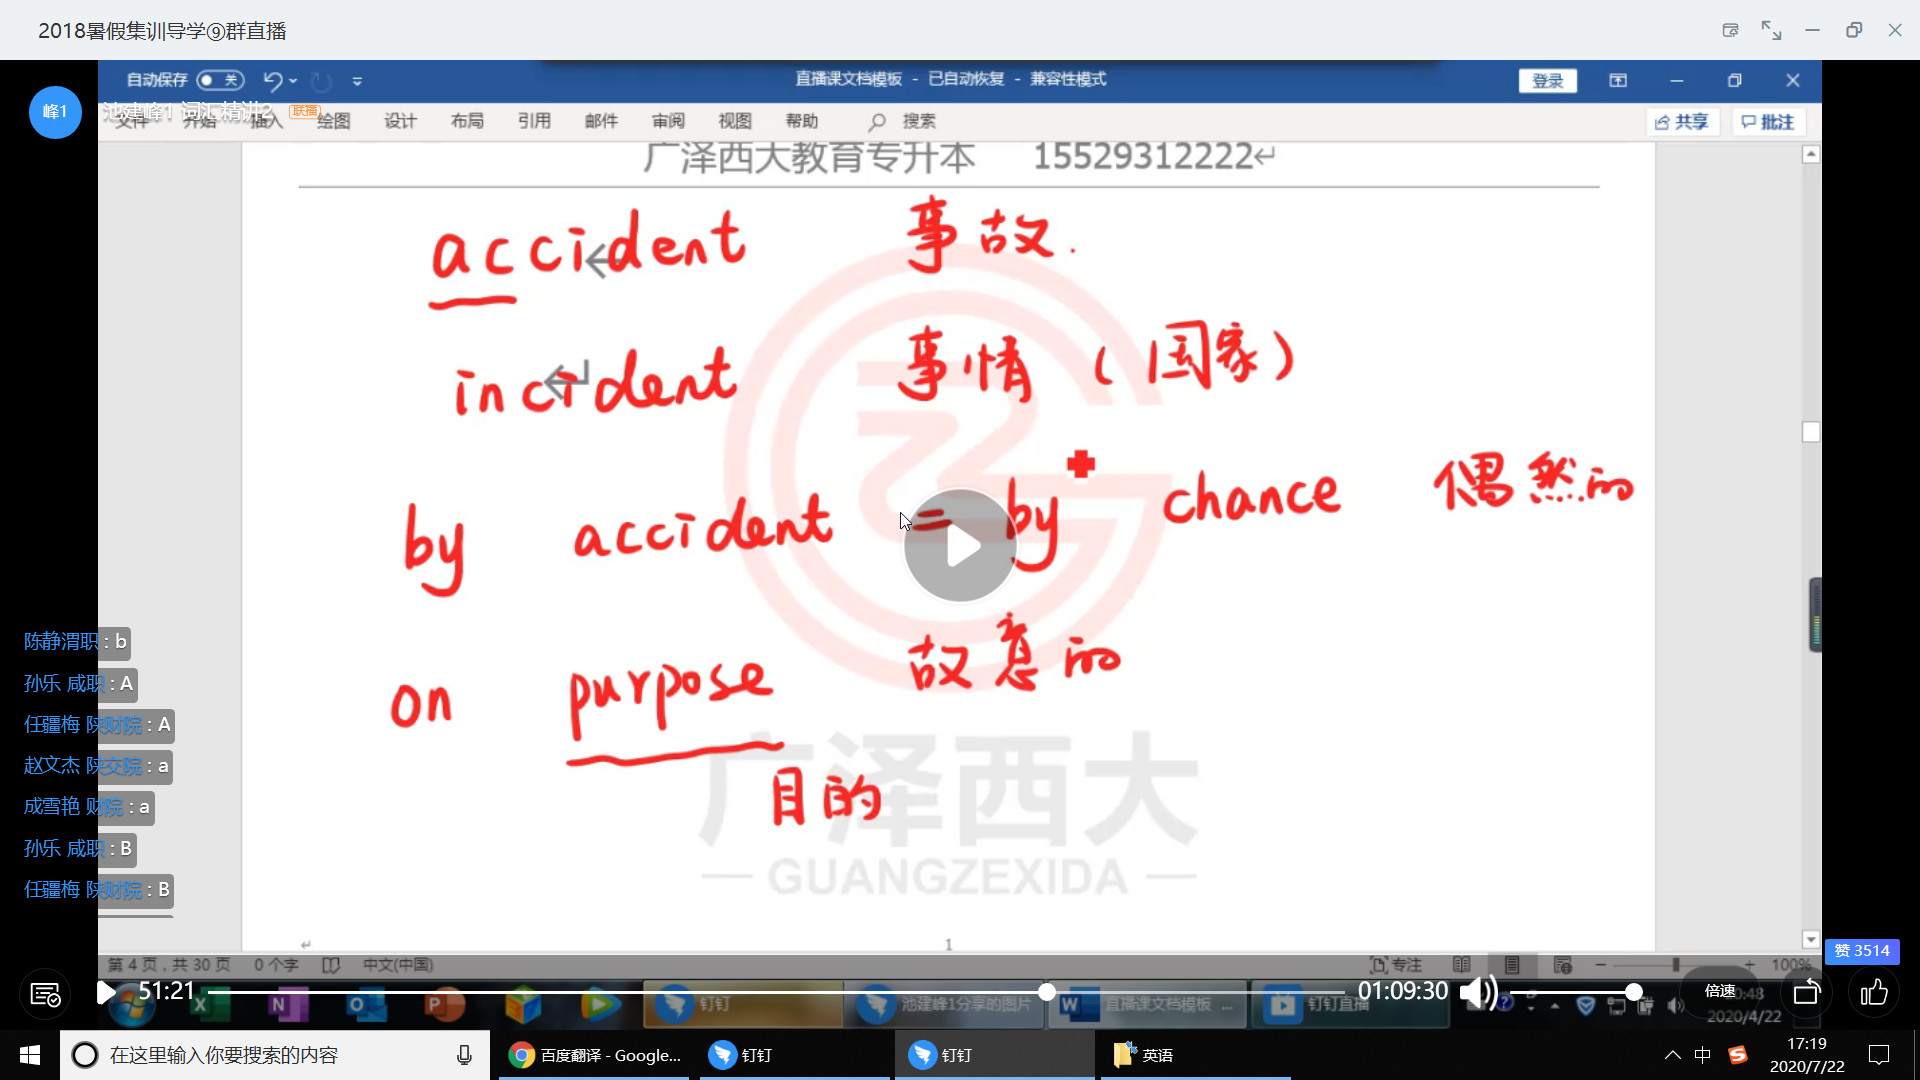 2018暑假集训导学⑨群直播
自动保存 关
直播课文档模板 - 已自动恢复 - 兼容性模式
登录
峰1
池建峰1 词汇精讲2 联播
文件 开始 插入 绘图 设计 布局 引用 邮件 审阅 视图 帮助 搜索
共享 批注
广泽西大教育专升本 15529312222
accident 事故.
incident 事情(国家)
by accident = by chance 偶然的
on purpose 故意的
目的
广泽西大
GUANGZEXIDA
陈静渭职 : b
孙乐 咸职 : A
任疆梅 陕财院 : A
赵文杰 陕交院 : a
成雪艳 财院 : a
孙乐 咸职 : B
任疆梅 陕财院 : B
1
赞 3514
第 4 页,共 30 页 0 个字 中文(中国) 专注 100%
51:21 01:09:30 倍速
钉钉 池建峰1分享的图片 直播课文档模板 ... 钉钉直播
2020/4/22
在这里输入你要搜索的内容
百度翻译 - Google... 钉钉 钉钉 英语
中 17:19
2020/7/22